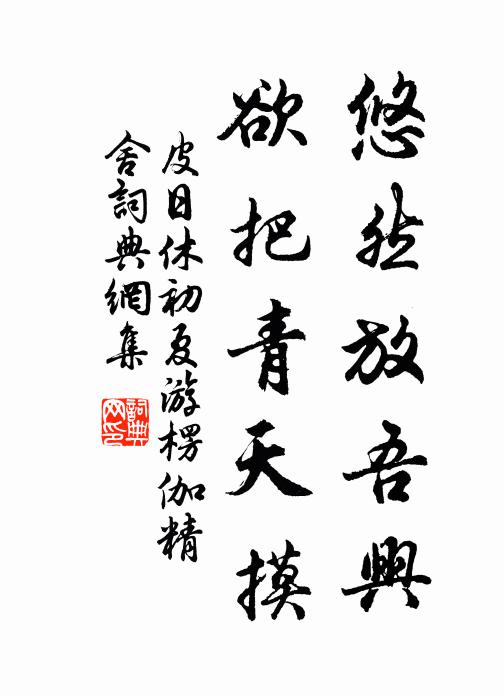 悠然放吾興
欲把青天摸
皮日休初夏游楞伽精
舍詞典網集
詞典网印